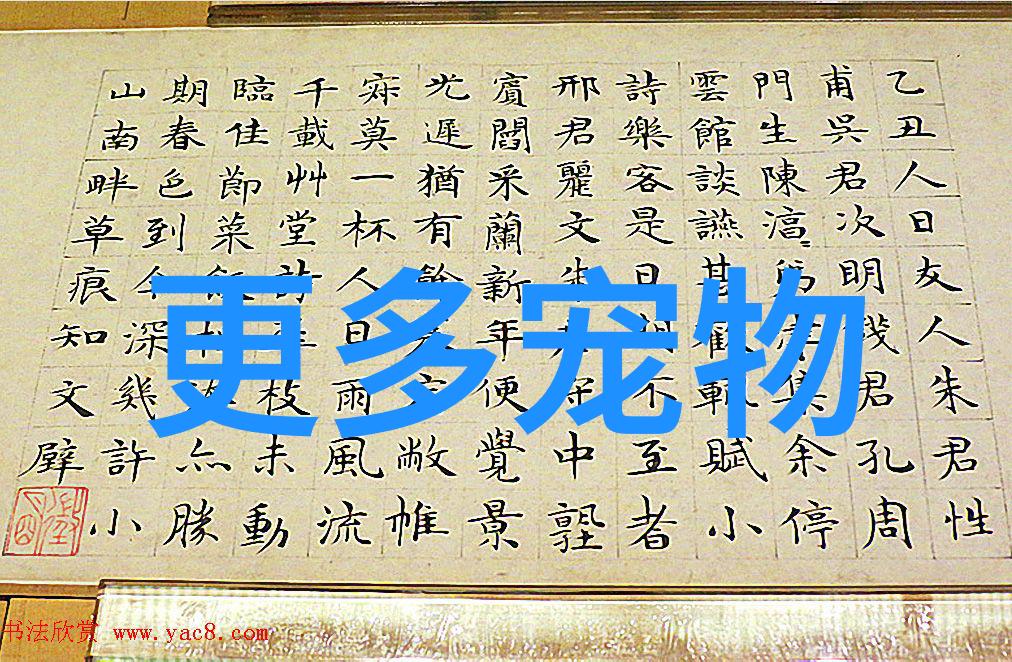 乙丑人日友人朱君性
甫吳君次明錢君孔周
門生陳集余停
雲館談讌甚歡輒賦小
詩樂客是日不至者
邢君麗文朱守中
賓閻采蘭新年便覺景
光遲猶有餘敝帷
寂莫一杯人日雨風流
千載艸堂詩枝未動
臨佳節菜飯亦勝
期春色到今深幾許小
山南畔草痕知文壁
更多宠物
书法欣赏 www.yac8.com